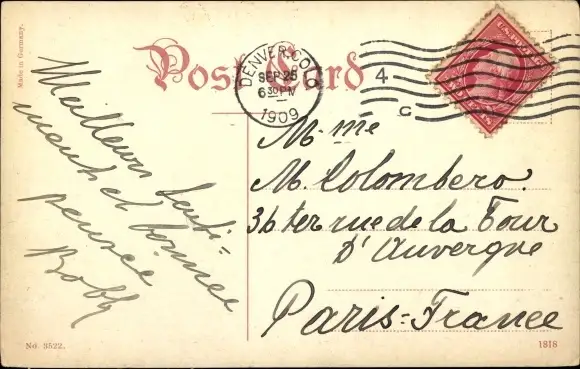 Made in Germany.
Post Card
DENVER, COLO.
SEP 25
6 30 PM
1909
4
C
Meilleurs senti-
ments et bonnes
pensée
Bobby
M-me
M. Colombero.
36 ter rue de la Tour
D'Auvergne
Paris=France
No. 3522.
1818